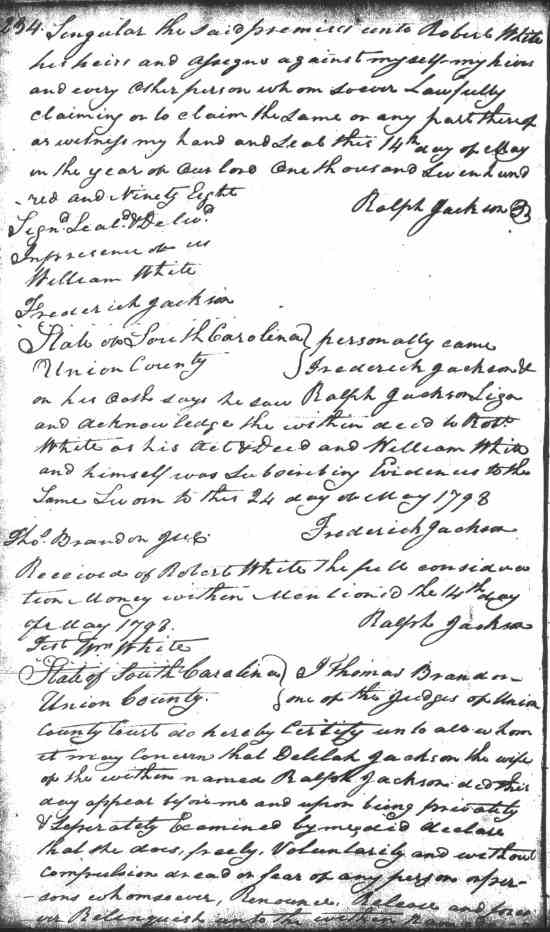 234. Singular the said premises unto Robert White
his heirs and assegns against myself my hiers
and every other person whom soever Lawfully
claiming or to claim the same or any part thereof
as witness my hand and Seal this 14th day of May
in the year of our lord one thousand Seven hund
-red and Ninety Eight
Ralph Jackson
Signd Seald & Delivd
In presence of us
William White
Frederick Jackson
State of South Carolina } personally came
Union County } Frederick Jackson &
on his oath says he saw Ralph Jackson Sign
and acknowledge the within deed to Robt
White as his Act & Deed and William White
and himself was Subscribing Evidences to the
Same Sworn to this 24 day of May 1798
Frederick Jackson
Tho. Brandon
Received of Robert White the full considera
tion Money within Mentioned the 14th day
of May 1798.
Ralph Jackson
Test Wm White
State of South Carolina } I Thomas Brandon
Union County. } one of the Judges of Union
County Court do hereby Certify unto all whom
it may Concern that Delilah Jackson the wife
of the within named Ralph Jackson did this
day appear before me and upon being privately
& Seperately Examined by me did declare
that she does, freely, Voluntarily and without
Compulsion dread or fear of any person or per-
-sons whomsoever, Renounce, Release and forev
er Relinquish unto the within